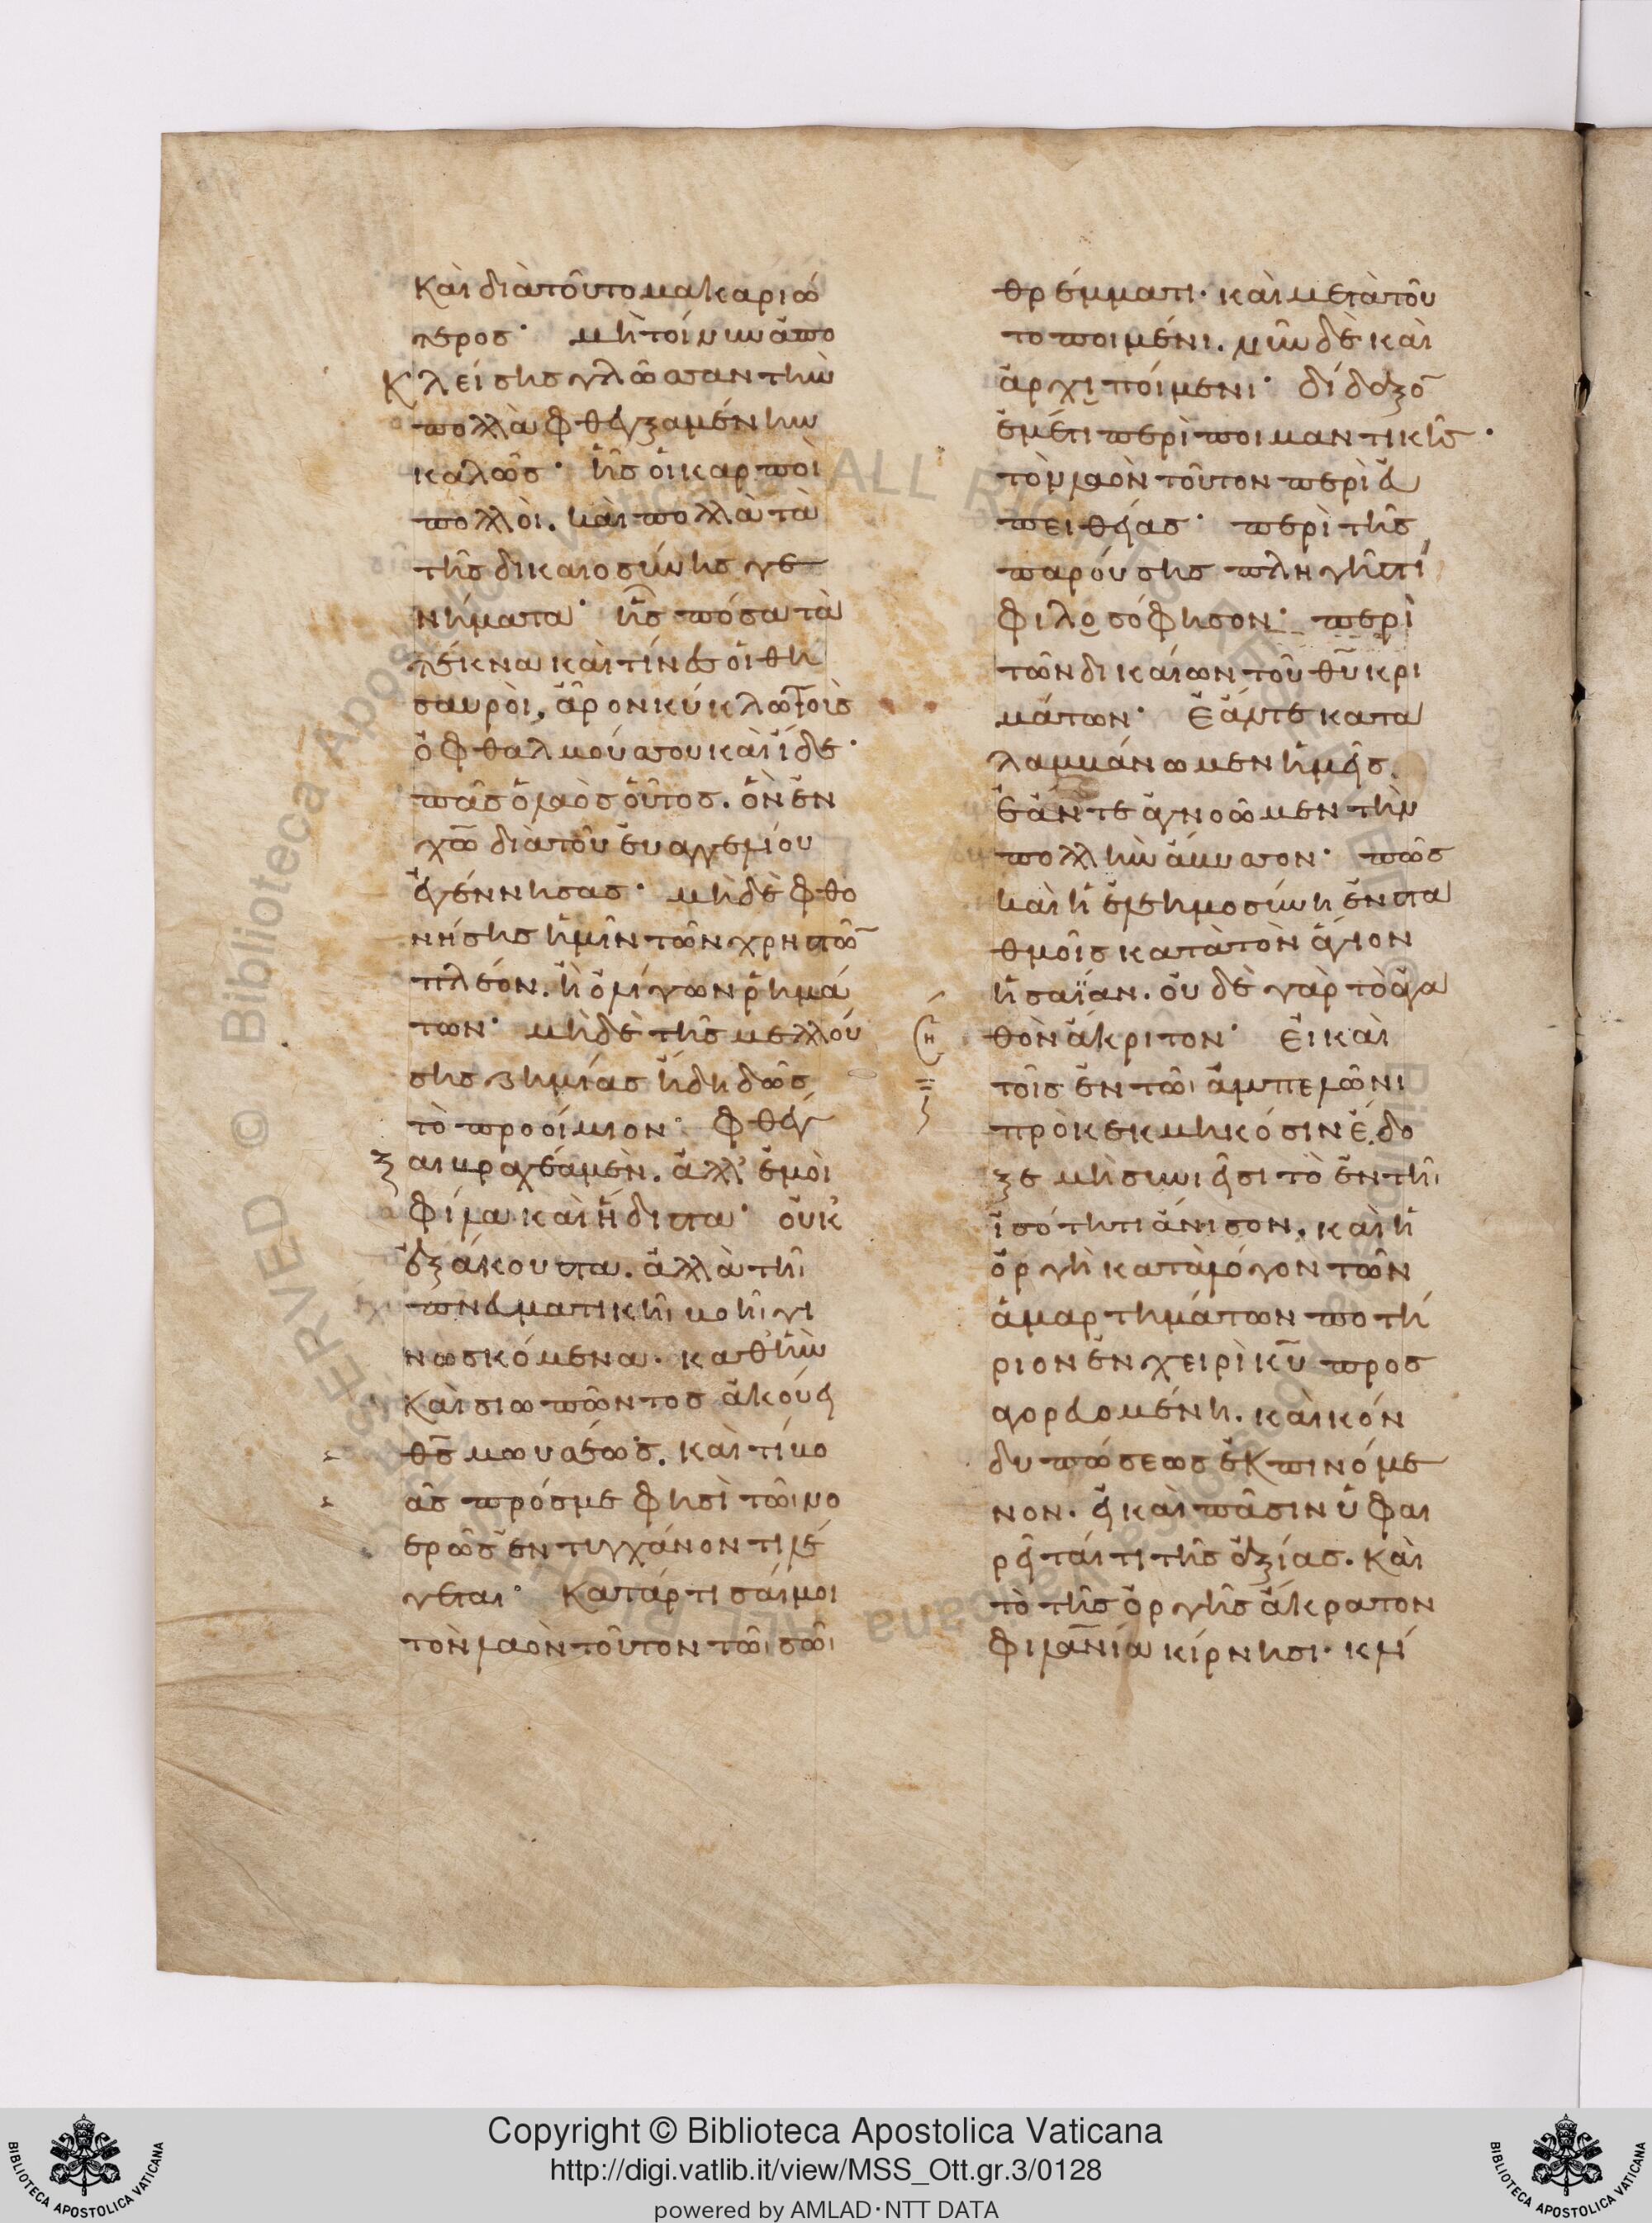 καὶ διὰ τοῦτο μακαριώ
τερος· μὴ τοίνυν ἀπο
κλείσῃς γλῶσσαν τὴν
πολλὰ φθεγξαμένην
καλῶς· ἧς οἱ καρποὶ
πολλοὶ. καὶ πολλὰ τὰ
τῆς δικαιοσύνης γε
νήματα· ἧς πόσα τὰ
τέκνα καὶ τίνες οἱ θη
σαυροὶ, ἆρον κύκλω τοὺς
ὀφθαλμούς σου καὶ ἴδε·
πᾶς ὁ λαὸς οὗτος. ὃν ἐν
χω διὰ τοῦ εὐαγγελίου
ἐγέννησας· μὴ δὲ φθο
νήσῃς ἡμῖν τῶν χρηστῶ
πλέον. ἢ ὀλίγων ῥημά
των· μὴ δὲ τῆς μελλού
σης ζημίας ἤδη δῶς
τὸ προοίμιον· φθέγ
ξαι βραχέα μὲν. ἀλλ' ἐμοὶ
φίλα καὶ ἥδιστα· οὐκ
ἐξάκουστα. ἀλλὰ τῆι
πνευματικῆι βοῆι γι
νωσκόμενα. καθ' ἣν
καὶ σιωπῶντος ἀκούει
θς μωυσέως. καὶ τί βο
ᾶς πρός με φησὶ τῶι νο
ερῶς ἐντυγχάνοντι λέ
γεται· Κατάρτισαί μοι
τὸν λαὸν τοῦτον τῶι σῶι
θρέμματι· καὶ μετὰ τοῦ
το ποιμένι. νῦν δὲ καὶ
ἀρχιποίμενι· δίδαξο
ἐμέ τι περὶ ποιμαντικῆς·
τὸν λαὸν τοῦτον περὶ εὐ
πειθείας· περὶ τῆς
παρούσης πληγῆς τί
φιλοσόφησον· περὶ
τῶν δικαίων τοῦ θυ κρι
μάτων· Ἐάν τε κατα
λαμβάνωμεν ἡμεῖς.
ἐάν τε ἀγνοῶμεν τὴν
πολλὴν ἄβυσσον· πῶς
καὶ ἡ ἐλεημοσύνη ἐν στα
θμοῖς κατὰ τὸν ἅγιον
ἡσαΐαν. οὐ δὲ γὰρ τὸ ἀγα
θὸν ἄκριτον· Εἰ καὶ
τοῖς ἐν τῶι ἀμπελῶνι
προκεκμηκόσιν ἔδο
ξε μὴ συνιεῖσι τὸ ἐν τῆι
ἰσότητι ἄνισον. καὶ ἡ
ὀργὴ κατὰ λόγον τῶν
ἁμαρτημάτων ποτή
ριον ἐν χειρὶ κυ προσ
αγορευομένη. καὶ κόν
δυ πτώσεως ἐκπινόμε
νον. εἰ καὶ πᾶσιν ὑφαι
ρεῖταί τι τῆς ἀξίας. καὶ
τὸ τῆς ὀργῆς ἄκρατον
φιλανία κίρνησι· κλί
Copyright © Biblioteca Apostolica Vaticana
http://digi.vatlib.it/view/MSS_Ott.gr.3/0128
powered by AMLAD·NTT DATA